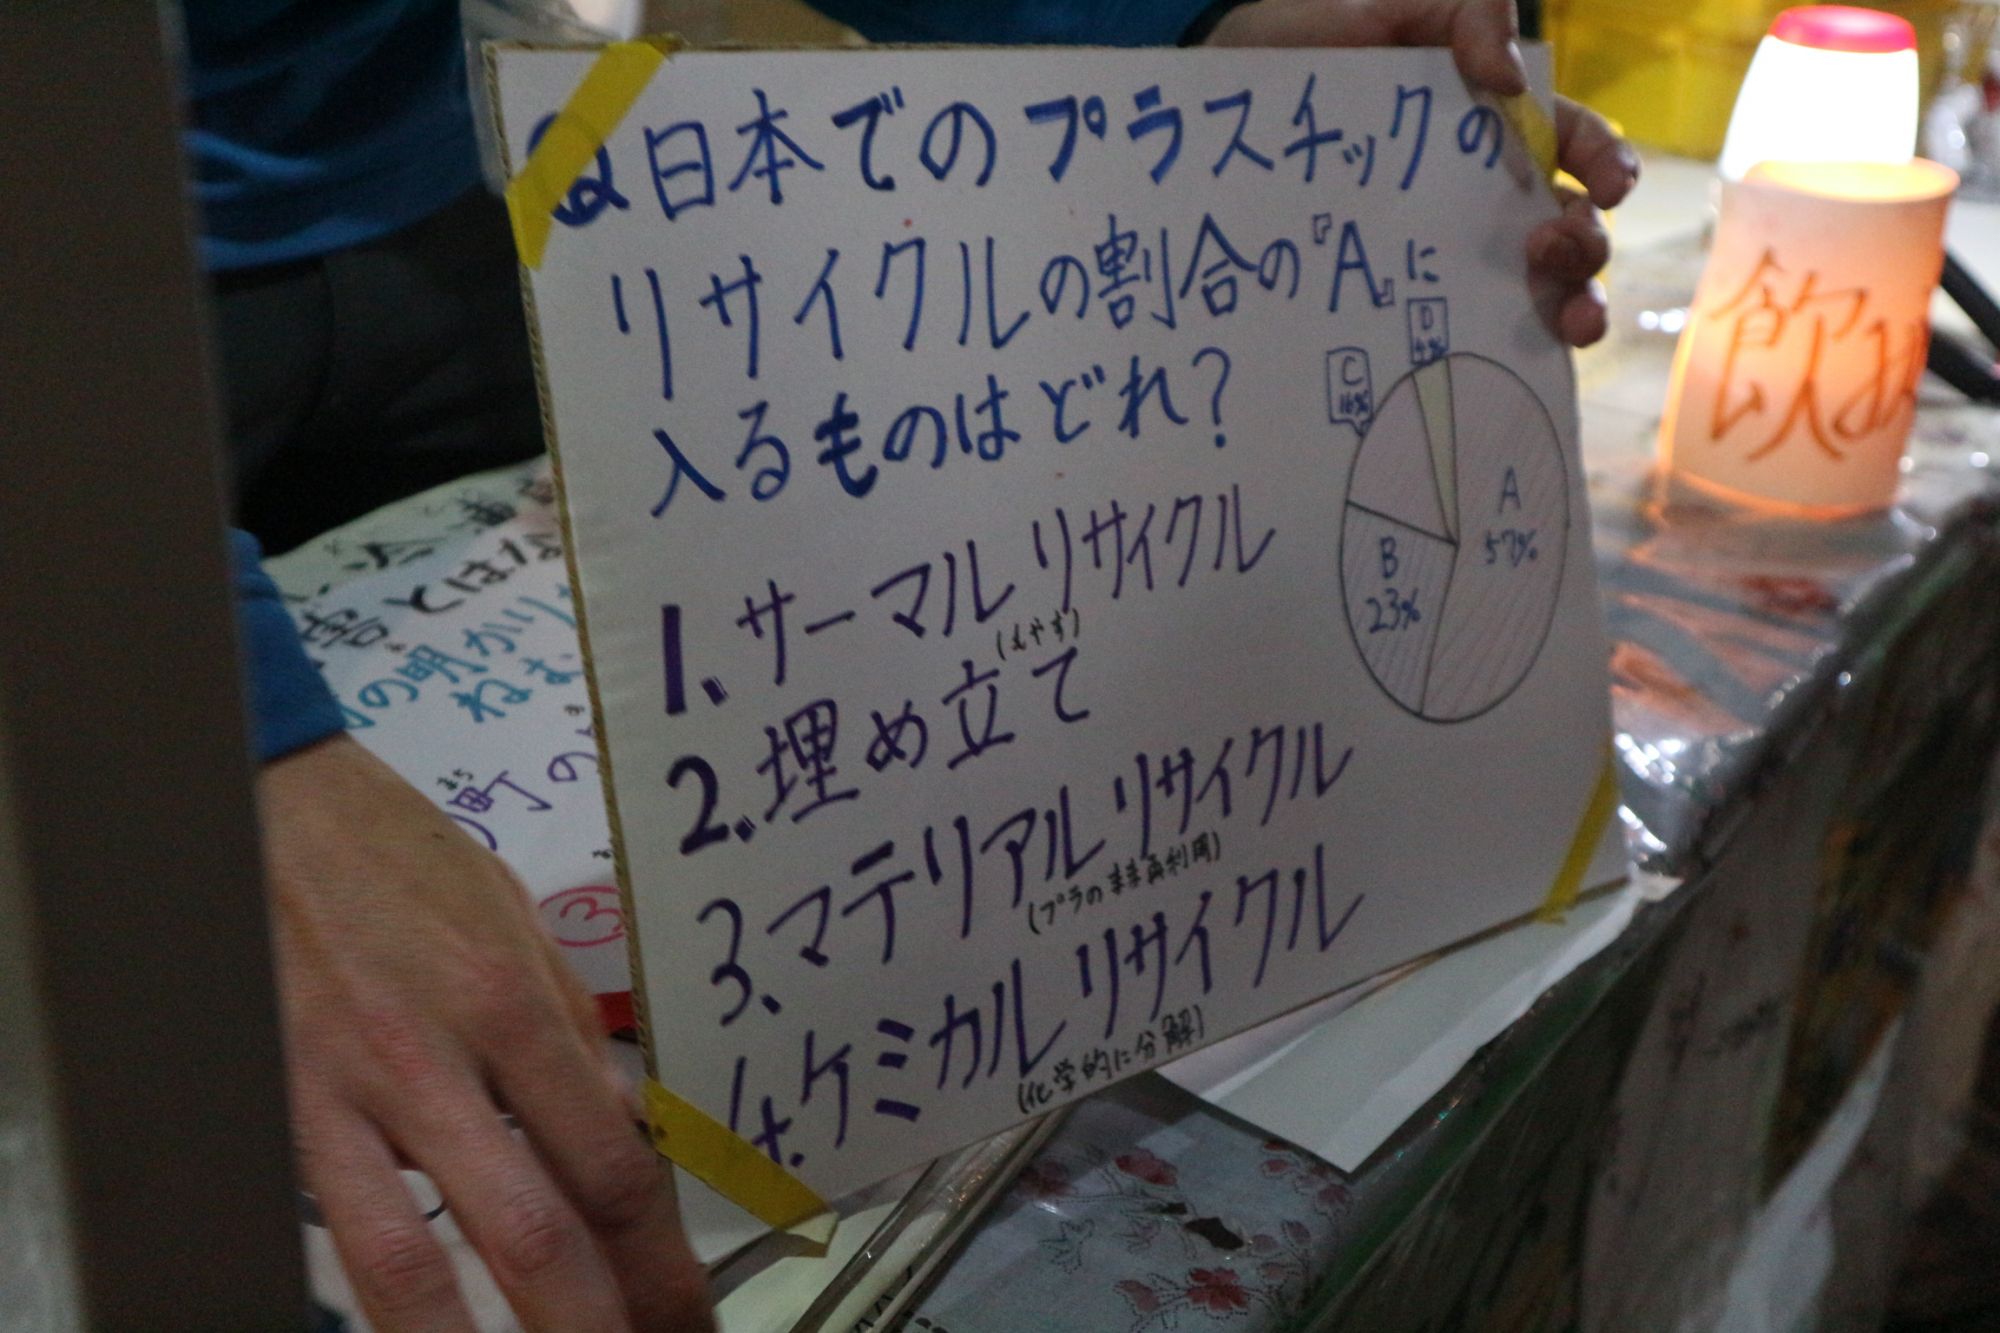 Q 日本でのプラスチックの
リサイクルの割合の『A』に
入るものはどれ?
D
4%
C
16%
A
57%
B
23%
1. サーマルリサイクル
(もやす)
2. 埋め立て
3. マテリアルリサイクル
(プラのまま再利用)
4. ケミカルリサイクル
(化学的に分解)
飲み
とはな
の明かり
ねむ
まち
町の
③